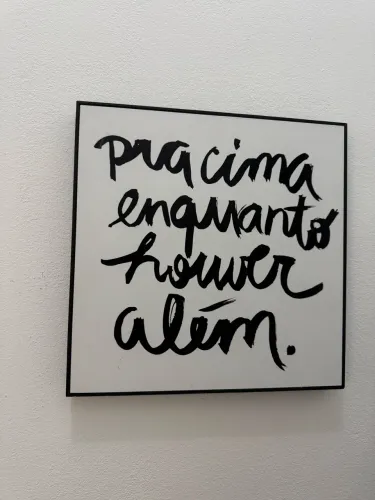 pra cima
enquanto
houver
além.